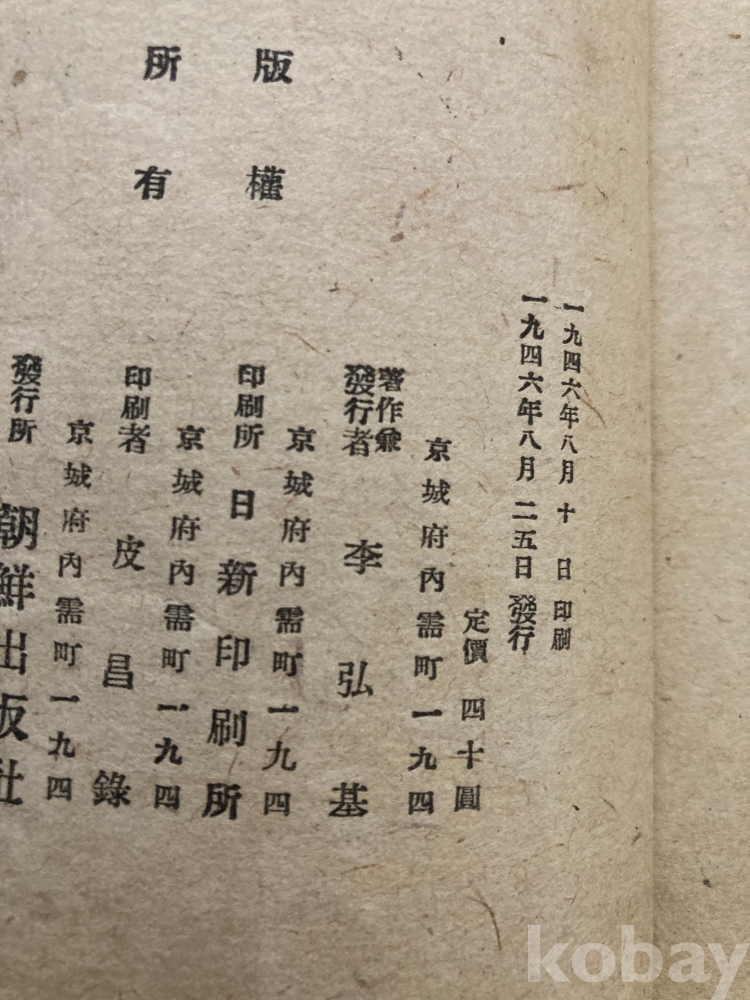 版權
所有
一九四六年八月十日印刷
一九四六年八月二五日發行
定價四十圓
京城府內需町一九四
著作兼
發行者 李弘基
京城府內需町一九四
印刷所 日新印刷所
京城府內需町一九四
印刷者 皮昌錄
京城府內需町一九四
發行所 朝鮮出版社
kobay